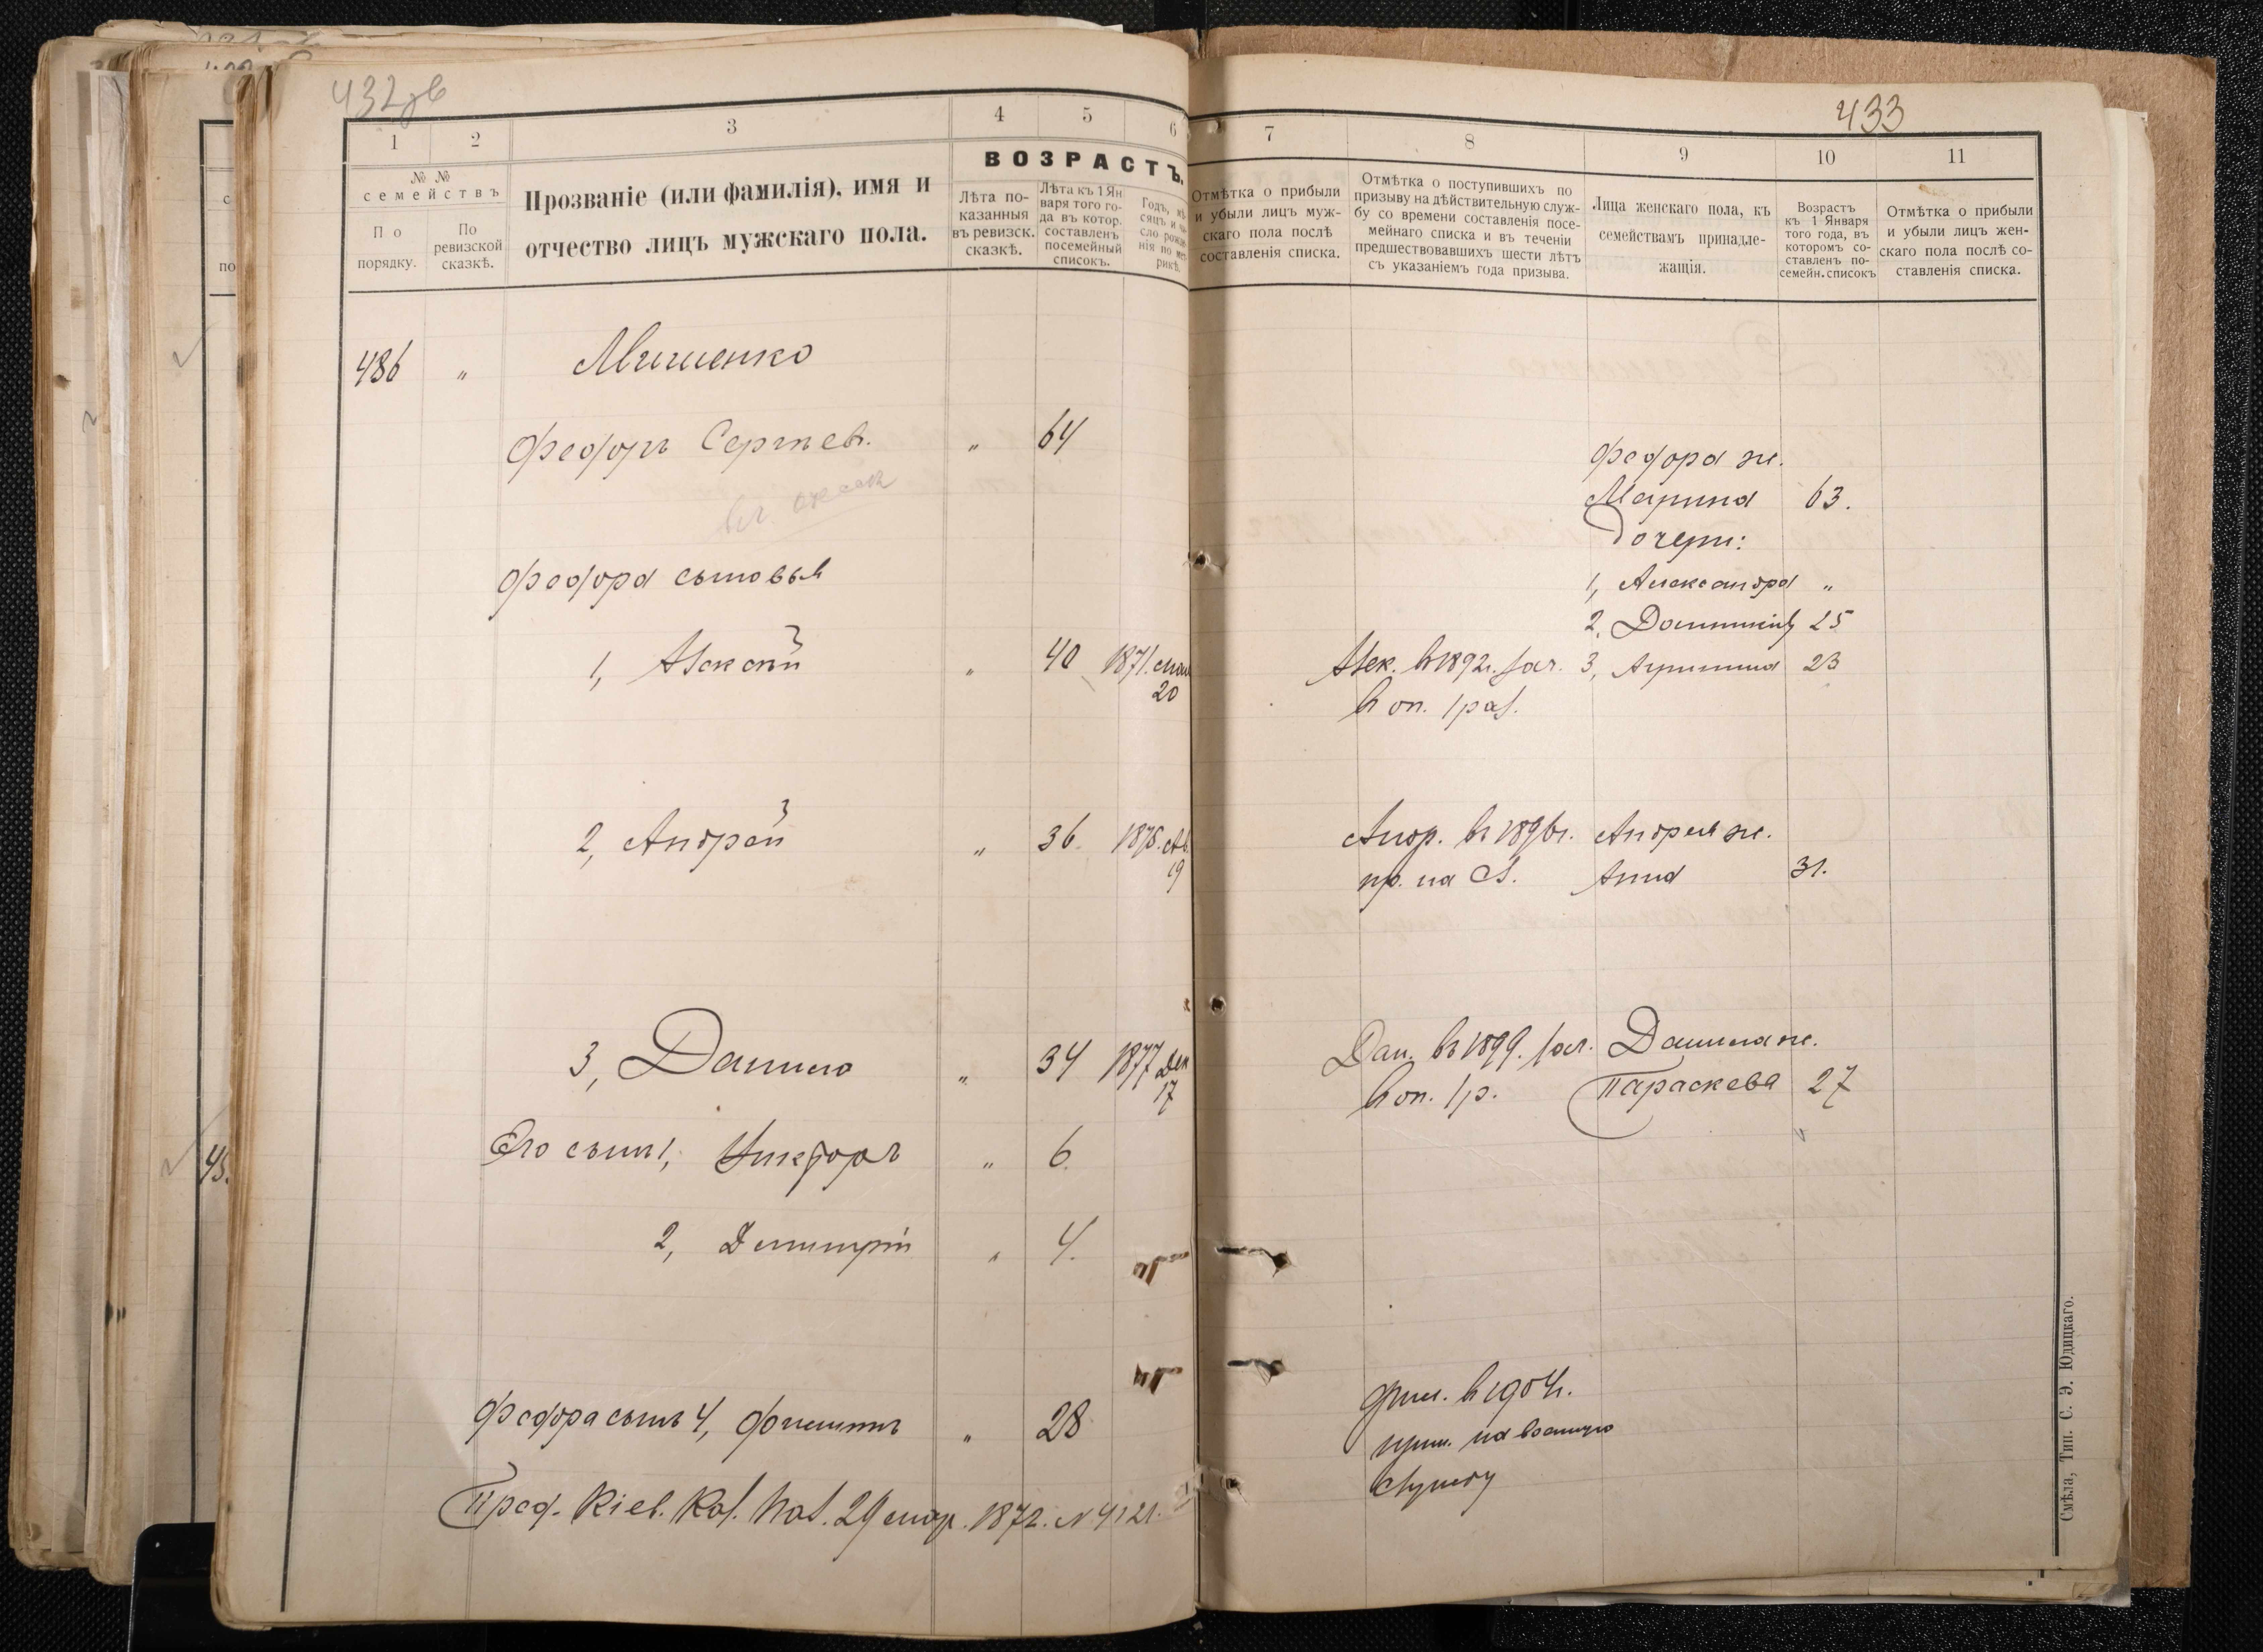 432зв
1 2 3 4 5 6
№ №
семействъ
По порядку.
По ревизской сказкѣ.
Прозваніе (или фамилія), имя и
отчество лицъ мужскаго пола.
ВОЗРАСТЪ.
Лѣта по-
казанныя
въ ревизск.
сказкѣ.
Лѣта къ 1 Ян
варя того го-
да въ котор.
составленъ
посемейный
списокъ.
Годъ, мѣ-
сяцъ и чи-
сло рожде
нія по мет
рикѣ.
486 „ Мишенко
Федоръ Сергѣев. „ 64
Федора сыновья
1, Алексѣй „ 40 1871. мая
20
2, Андрей „ 36 1875. Ав.
19
3, Данило „ 34 1877 Дек
17
Его сын 1, Никифоръ „ 6.
2, Димитрій „ 4.
Федора сынъ 4, Филиппъ „ 28
Пред. Кіев. Каз. Пал. 29 мар. 1872. № 4121.
433
7 8 9 10 11
Отмѣтка о прибыли
и убыли лицъ муж-
скаго пола послѣ
составленія списка.
Отмѣтка о поступившихъ по
призыву на дѣйствительную служ-
бу со времени составленія посе-
мейнаго списка и въ теченіи
предшествовавшихъ шести лѣтъ
съ указаніемъ года призыва.
Лица женскаго пола, къ
семействамъ принадле-
жащія.
Возрастъ
къ 1 Января
того года, въ
которомъ со-
ставленъ по-
семейн. списокъ
Отмѣтка о прибыли
и убыли лицъ жен-
скаго пола послѣ со-
ставленія списка.
Федора ж.
Марина 63.
Дочери:
1, Александра „
2, Домникія 25
Алек. въ 1892г. зач. 3, Агрипина 23
в оп. 1 раз.
Андр. въ 1896г. Андрея ж.
пр. на С. Анна 31.
Дан. въ 1899. зач. Данила ж.
в оп. 1 р. Параскева 27
Фил. в 1904г.
прин. на военную
службу
Смѣла, Тип. С. Э. Юдицкаго.